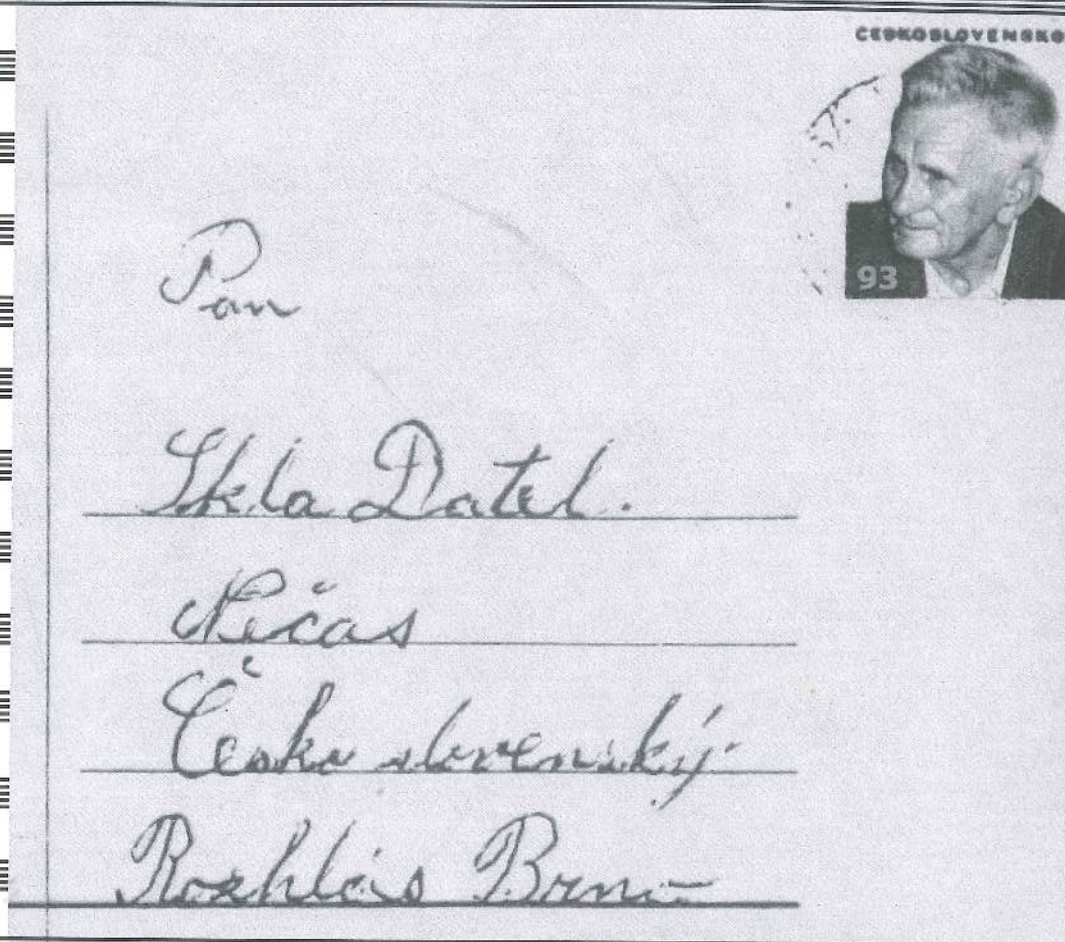 ČESKOSLOVENSKO
57.
93
Pan
Skla Datel.
Nečas
Česko slovenský.
Rozhlás Brno